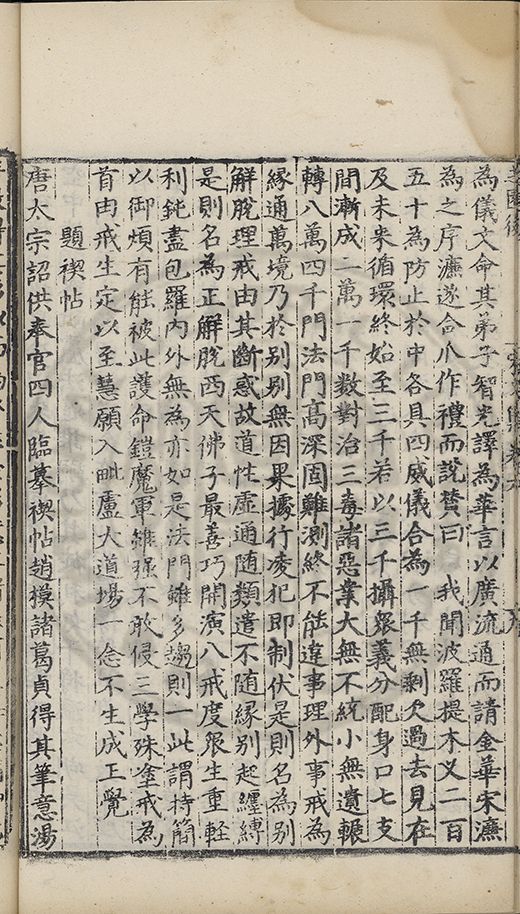 為儀文命其弟子智光譯為華言以廣流通而請金華宋濂
為之序濂遂合爪作禮而說贊曰 我聞波羅提木义二百
五十為防止於中各具四威儀合為一千無剩欠過去見在
及未來循環終始至三千若以三千攝眾義分配身口七支
間漸成二萬一千數對治三毒諸惡業大無不統小無遺輾
轉八萬四千門法門高深固難測終不能違事理外事戒為
緣通萬境乃於別別無因果據行淩犯即制伏是則名為別
解脫理戒由其斷惑故道性虛通隨類遣不隨緣別起纏縛
是則名為正解脫西天佛子最善巧開演八戒度眾生重輕
利鈍盡包羅內外無為亦如是法門雖多趣則一此謂持簡
以御煩有能被此護命鎧魔軍雖强不敢侵三學殊塗戒為
首由戒生定以至慧願入毗盧大道場一念不生成正覺
題禊帖
唐太宗詔供奉官四人臨摹禊帖趙摸諸葛貞得其筆意湯